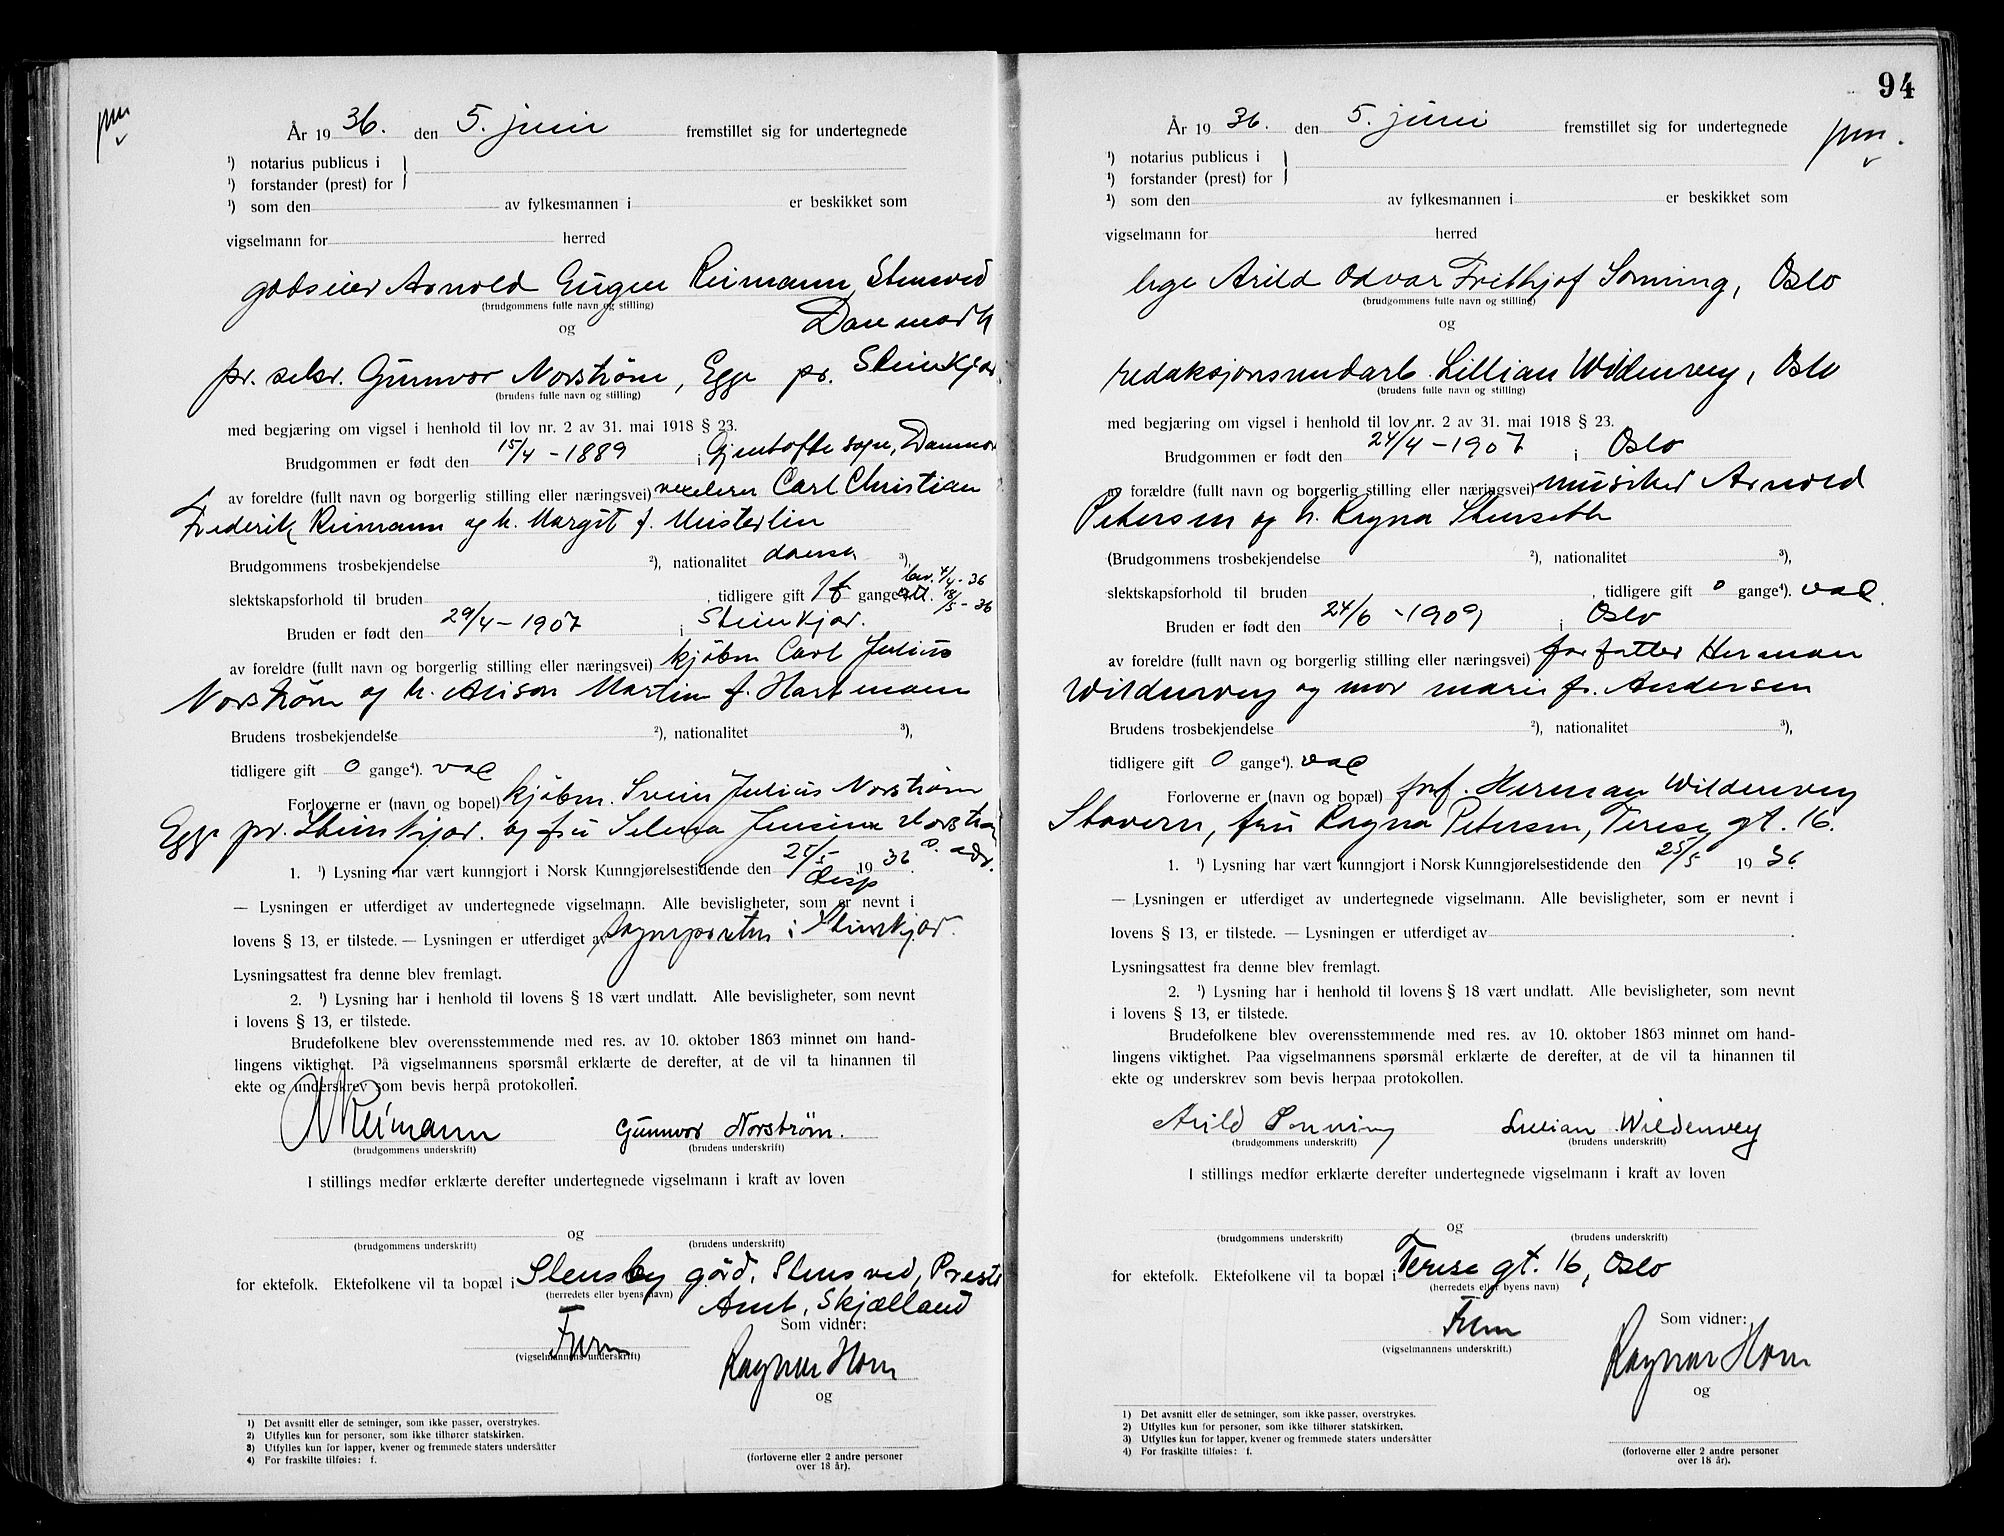 pm
År 1936. den 5. juni fremstillet sig for undertegnede
¹) notarius publicus i
¹) forstander (prest) for
¹) som den av fylkesmannen i er beskikket som
vigselmann for herred
godseier Arnold Eugen Reimann, Stensved
(brudgommens fulle navn og stilling)
og Danmark
pr. sekr. Gunnvor Norstrøm, Egge pr. Steinkjær.
(brudens fulle navn og stilling)
med begjæring om vigsel i henhold til lov nr. 2 av 31. mai 1918 § 23.
Brudgommen er født den 15/4 - 1889 i Gjentofte sogn, Danmar
av foreldre (fullt navn og borgerlig stilling eller næringsvei) vexelerer Carl Christian
Frederik Reimann og h. Margit f. Meisterlin
Brudgommens trosbekjendelse ²), nationalitet dansk ³),
slektskapsforhold til bruden , tidligere gift 1 f gange⁴). bev. 4/4 - 36
att. 18/5 - 36
Bruden er født den 29/4 - 1907 i Steinkjær.
av foreldre (fullt navn og borgerlig stilling eller næringsvei) kjøbm Carl Julius
Norstrøm og h. Martin f. Hartmann
Brudens trosbekjendelse ²), nationalitet ³),
tidligere gift 0 gange⁴). vac
Forloverne er (navn og bopel) kjøbm. Svein Julius Norstrøm
Egge pr. Steinkjær. og fru Selma Jensine Norstrøm
s. adr.
1. ¹) Lysning har vært kunngjort i Norsk Kunngjørelsestidende den 25/5 1936.
disp
— Lysningen er utferdiget av undertegnede vigselmann. Alle bevisligheter, som er nevnt i
lovens § 13, er tilstede. — Lysningen er utferdiget av sognepresten i Steinkjær.
Lysningsattest fra denne blev fremlagt.
2. ¹) Lysning har i henhold til lovens § 18 vært undlatt. Alle bevisligheter, som nevnt
i lovens § 13, er tilstede.
Brudefolkene blev overensstemmende med res. av 10. oktober 1863 minnet om hand-
lingens viktighet. På vigselmannens spørsmål erklærte de derefter, at de vil ta hinannen til
ekte og underskrev som bevis herpå protokollen.
A Reimann Gunnvor Norstrøm.
(brudgommens underskrift) (brudens underskrift)
I stillings medfør erklærte derefter undertegnede vigselmann i kraft av loven
og
(brudgommens underskrift) (brudens underskrift)
for ektefolk. Ektefolkene vil ta bopæl i Stensby gård, Stensved, Prestø
(herredets eller byens navn) Amt, Skjælland
Som vidner:
(vigselmannens underskrift) Ragnar Horn
og
1) Det avsnitt eller de setninger, som ikke passer, overstrykes.
2) Utfylles kun for personer, som ikke tilhører statskirken.
3) Utfylles kun for lapper, kvener og fremmede staters undersåtter
4) For fraskilte tilføies: f.
(forloverne eller 2 andre personer
over 18 år).
94
pm.
År 1936. den 5. juni fremstillet sig for undertegnede
¹) notarius publicus i
¹) forstander (prest) for
¹) som den av fylkesmannen i er beskikket som
vigselmann for herred
lege Arild Odvar Frithjof Sonning, Oslo
(brudgommens fulle navn og stilling)
og
redaksjonsmedarb. Lillian Wildenvey, Oslo
(brudens fulle navn og stilling)
med begjæring om vigsel i henhold til lov nr. 2 av 31. mai 1918 § 23.
Brudgommen er født den 24/4 - 1907 i Oslo
av forældre (fullt navn og borgerlig stilling eller næringsvei) musiker Arnold
Petersen og h. Ragna Stenseth
(Brudgommens trosbekjendelse ²), nationalitet ³),
slektskapsforhold til bruden , tidligere gift 0 gange⁴). vac.
Bruden er født den 24/6 - 1909 i Oslo
av foreldre (fullt navn og borgerlig stilling eller næringsvei) forfatter Herman
Wildenvey og mor marie f. Andersen
Brudens trosbekjendelse ²), nationalitet ³),
tidligere gift 0 gange⁴). vac
Forloverne er (navn og bopæl) forf. Herman Wildenvey
Stavern, fru Ragna Petersen, Terese gt. 16.
1. ¹) Lysning har vært kunngjort i Norsk Kunngjørelsestidende den 25/5 1936
— Lysningen er utferdiget av undertegnede vigselmann. Alle bevisligheter, som er nevnt i
lovens § 13, er tilstede. — Lysningen er utferdiget av .
Lysningsattest fra denne blev fremlagt.
2. ¹) Lysning har i henhold til lovens § 18 vært undlatt. Alle bevisligheter, som nevnt
i lovens § 13, er tilstede.
Brudefolkene blev overensstemmende med res. av 10. oktober 1863 minnet om hand-
lingens viktighet. Paa vigselmannens spørsmål erklærte de derefter, at de vil ta hinannen til
ekte og underskrev som bevis herpaa protokollen.
Arild Sonning Lillian Wildenvey
(brudgommens underskrift) (brudens underskrift)
I stillings medfør erklærte derefter undertegnede vigselmann i kraft av loven
og
(brudgommens underskrift) (brudens underskrift)
for ektefolk. Ektefolkene vil ta bopæl i Terese gt. 16, Oslo
(herredets eller byens navn)
Som vidner:
(vigselmannens underskrift.) Ragnar Horn
og
1) Det avsnitt eller de setninger, som ikke passer, overstrykes.
2) Utfylles kun for personer, som ikke tilhører statskirken.
3) Utfylles kun for lapper, kvener og fremmede staters undersåtter
4) For fraskilte tilføies: f.
(forloverne eller 2 andre personer
over 18 år).